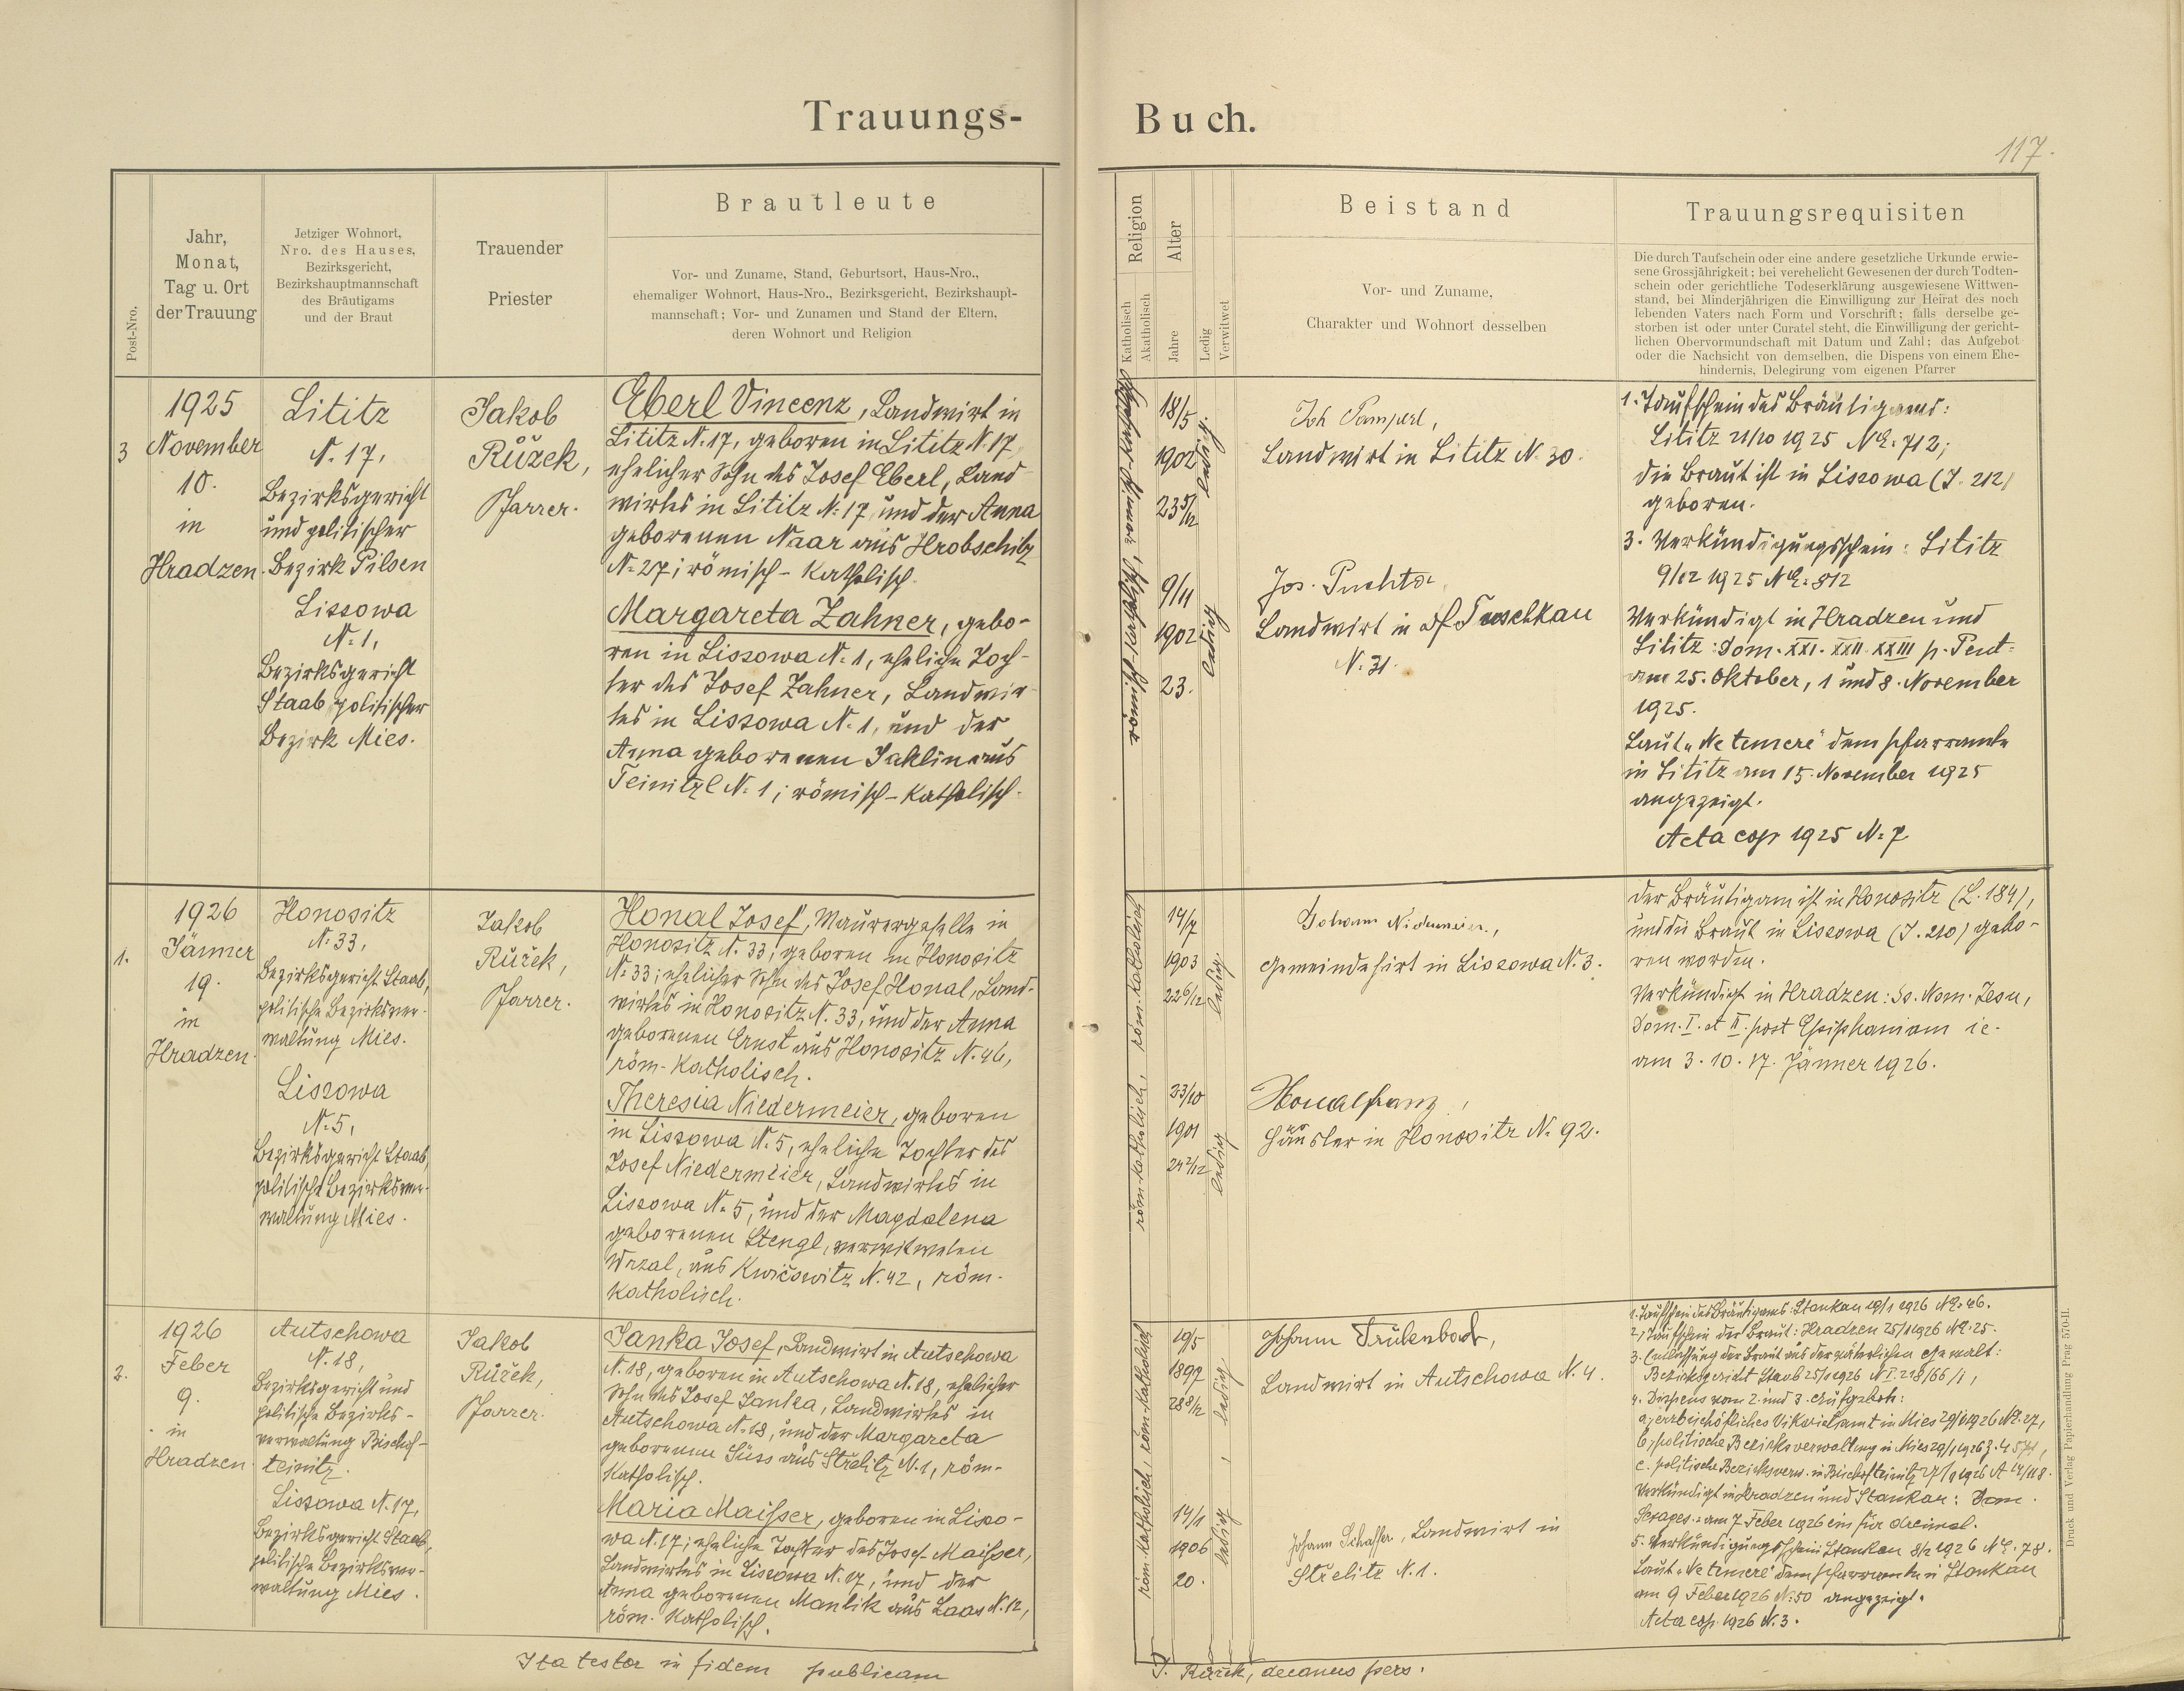 Trauungs-
Buch.
117.
Post-Nro.
Jahr,
Monat,
Tag u. Ort
der Trauung
Jetziger Wohnort,
Nro. des Hauses,
Bezirksgericht,
Bezirkshauptmannschaft
des Bräutigams
und der Braut
Trauender
Priester
Brautleute
Vor- und Zuname, Stand, Geburtsort, Haus-Nro.,
ehemaliger Wohnort, Haus-Nro., Bezirksgericht, Bezirkshaupt-
mannschaft; Vor- und Zunamen und Stand der Eltern,
deren Wohnort und Religion
Religion
Katholisch
Akatholisch
Alter
Jahre
Ledig
Verwitwet
Beistand
Vor- und Zuname,
Charakter und Wohnort desselben
Trauungsrequisiten
Die durch Taufschein oder eine andere gesetzliche Urkunde erwie-
sene Grossjährigkeit; bei verehelicht Gewesenen der durch Todten-
schein oder gerichtliche Todeserklärung ausgewiesene Wittwen-
stand, bei Minderjährigen die Einwilligung zur Heirat des noch
lebenden Vaters nach Form und Vorschrift; falls derselbe ge-
storben ist oder unter Curatel steht, die Einwilligung der gericht-
lichen Obervormundschaft mit Datum und Zahl; das Aufgebot
oder die Nachsicht von demselben, die Dispens von einem Ehe-
hindernis, Delegirung vom eigenen Pfarrer
3
1925
November
10.
in
Hradzen.
Lititz
N. 17,
Bezirksgericht
und politischer
Bezirk Pilsen
Lissowa
N. 1,
Bezirksgericht
Staab politischer
Bezirk Mies.
Jakob
Růžek,
Pfarrer.
Eberl Vincenz, Landwirt in
Lititz N. 17, geboren in Lititz N. 17,
ehelicher Sohn des Josef Eberl, Land-
wirtes in Lititz N. 17, und der Anna
geborenen Naar aus Hrobschitz
N. 27; römisch-katholisch.
Margareta Zahner, gebo-
ren in Lissowa N. 1, eheliche Toch-
ter des Josef Zahner, Landwir-
tes in Lissowa N. 1, und der
Anna geborenen Jaklin aus
Teinitzl N. 1; römisch-katholisch.
römisch-katholisch, römisch-katholisch
18/5
1902
23 5/12
ledig
9/11
1902
23.
ledig
Joh Pamperl,
Landwirt in Lititz N. 30.
Jos. Puchta
Landwirt in Tuschkau
N. 31.
1. Taufschein des Bräutigams:
Lititz 21/10 1925 NE. 712;
die Braut ist in Lissowa (J. 212)
geboren.
3. Verkündigungsschein: Lititz
9/12 1925 NE. 812
Verkündigt in Hradzen und
Lititz: Dom. XXI. XXII. XXIII p. Pent.
am 25. Oktober, 1 und 8. November
1925.
Laut „Ne temere" dem Pfarramte
in Lititz am 15. November 1925
angezeigt.
Acta cop 1925 N. 7
1.
1926
Jänner
19.
in
Hradzen.
Honositz
N. 33,
Bezirksgericht Staab,
politische Bezirksver-
waltung Mies.
Lissowa
N. 5,
Bezirksgericht Staab,
politische Bezirksver-
waltung Mies.
Jakob
Růžek,
Pfarrer.
Honal Josef, Maurergeselle in
Honositz N. 33; geboren in Honositz
N. 33; ehelicher Sohn des Josef Honal, Land-
wirtes in Honositz N. 33, und der Anna
geborenen Ernst aus Honositz N. 46,
röm-katholisch.
Theresia Niedermeier, geboren
in Lissowa N. 5, eheliche Tochter des
Josef Niedermeier, Landwirtes in
Lissowa N. 5, und der Magdalena
geborenen Stengl, verwitweten
Wrzal, aus Kwičowitz N. 42, röm.
katholisch.
röm-katholisch, röm-katholisch
14/7
1903
22 6/12
ledig
23/10
1901
24 2/12
ledig
Johann Nidermeier,
Gemeindehirt in Lissowa N. 3.
Honal Franz,
Häusler in Honositz N. 92.
der Bräutigam ist in Honositz (L. 184),
und die Braut in Lissowa (J. 210) gebo-
ren worden.
Verkündigt in Hradzen: Ss. Nom. Jesu,
Dom. I. et II. post Epiphaniam ie.
am 3. 10. 17. Jänner 1926.
2.
1926
Feber
9.
in
Hradzen
Autschowa
N. 18,
Bezirksgericht und
politische Bezirks-
verwaltung Bischof-
teinitz.
Lissowa N. 17,
Bezirksgericht Staab,
politische Bezirksver-
waltung Mies.
Jakob
Růžek,
Pfarrer.
Janka Josef, Landwirt in Autschowa
N. 18, geboren in Autschowa N. 18, ehelicher
Sohn des Josef Janka, Landwirtes in
Autschowa N. 18, und der Margareta
geborenen Süss aus Střelitz N. 1, röm-
katholisch.
Maria Maisser, geboren in Lisso-
wa N. 17; eheliche Tochter des Josef Maisser,
Landwirtes in Lissowa N. 17, und der
Anna geborenen Manlik aus Laas N. 12,
röm. katholisch.
röm-katholisch, röm-katholisch
19/5
1897
28 8/12
ledig
14/1
1906
20.
ledig
Johann Trulenbock,
Landwirt in Autschowa N. 4.
Johann Schaffer, Landwirt in
Střelitz N. 1.
1. Taufschein des Bräutigams: Stankau 19/1 1926 NE. 46.
2. Taufschein der Braut: Hradzen 25/1 1926 NE. 25.
3. Entlassung der Braut aus der väterlichen Gewalt:
Bezirksgericht Staab 25/1 1926 N I. 218/66/1,
4. Dispens vom 2. und 3. Aufgebot:
a, erzbischöfliches Vikariatsamt in Mies 29/1 1926 NE. 27,
b, politische Bezirksverwaltung in Mies 29/1 1926
c. politische Bezirksverw. in Bischofteinitz 1926
Verkündigt in Hradzen und Stankau: Dom.
Sexages. am 7 Feber 1926 ein für dreimal.
5. Verkündigungsschein Stankau 8/2 1926 NE. 78.
Laut „Ne temere" dem Pfarramte in Stankau
am 9 Feber 1926 N. 50 angezeigt.
Acta cop. 1926 N. 3.
Ita testor in fidem publicam
J. Růžek, decanus pers.
Druck und Verlag Papierhandlung Prag 570-II.